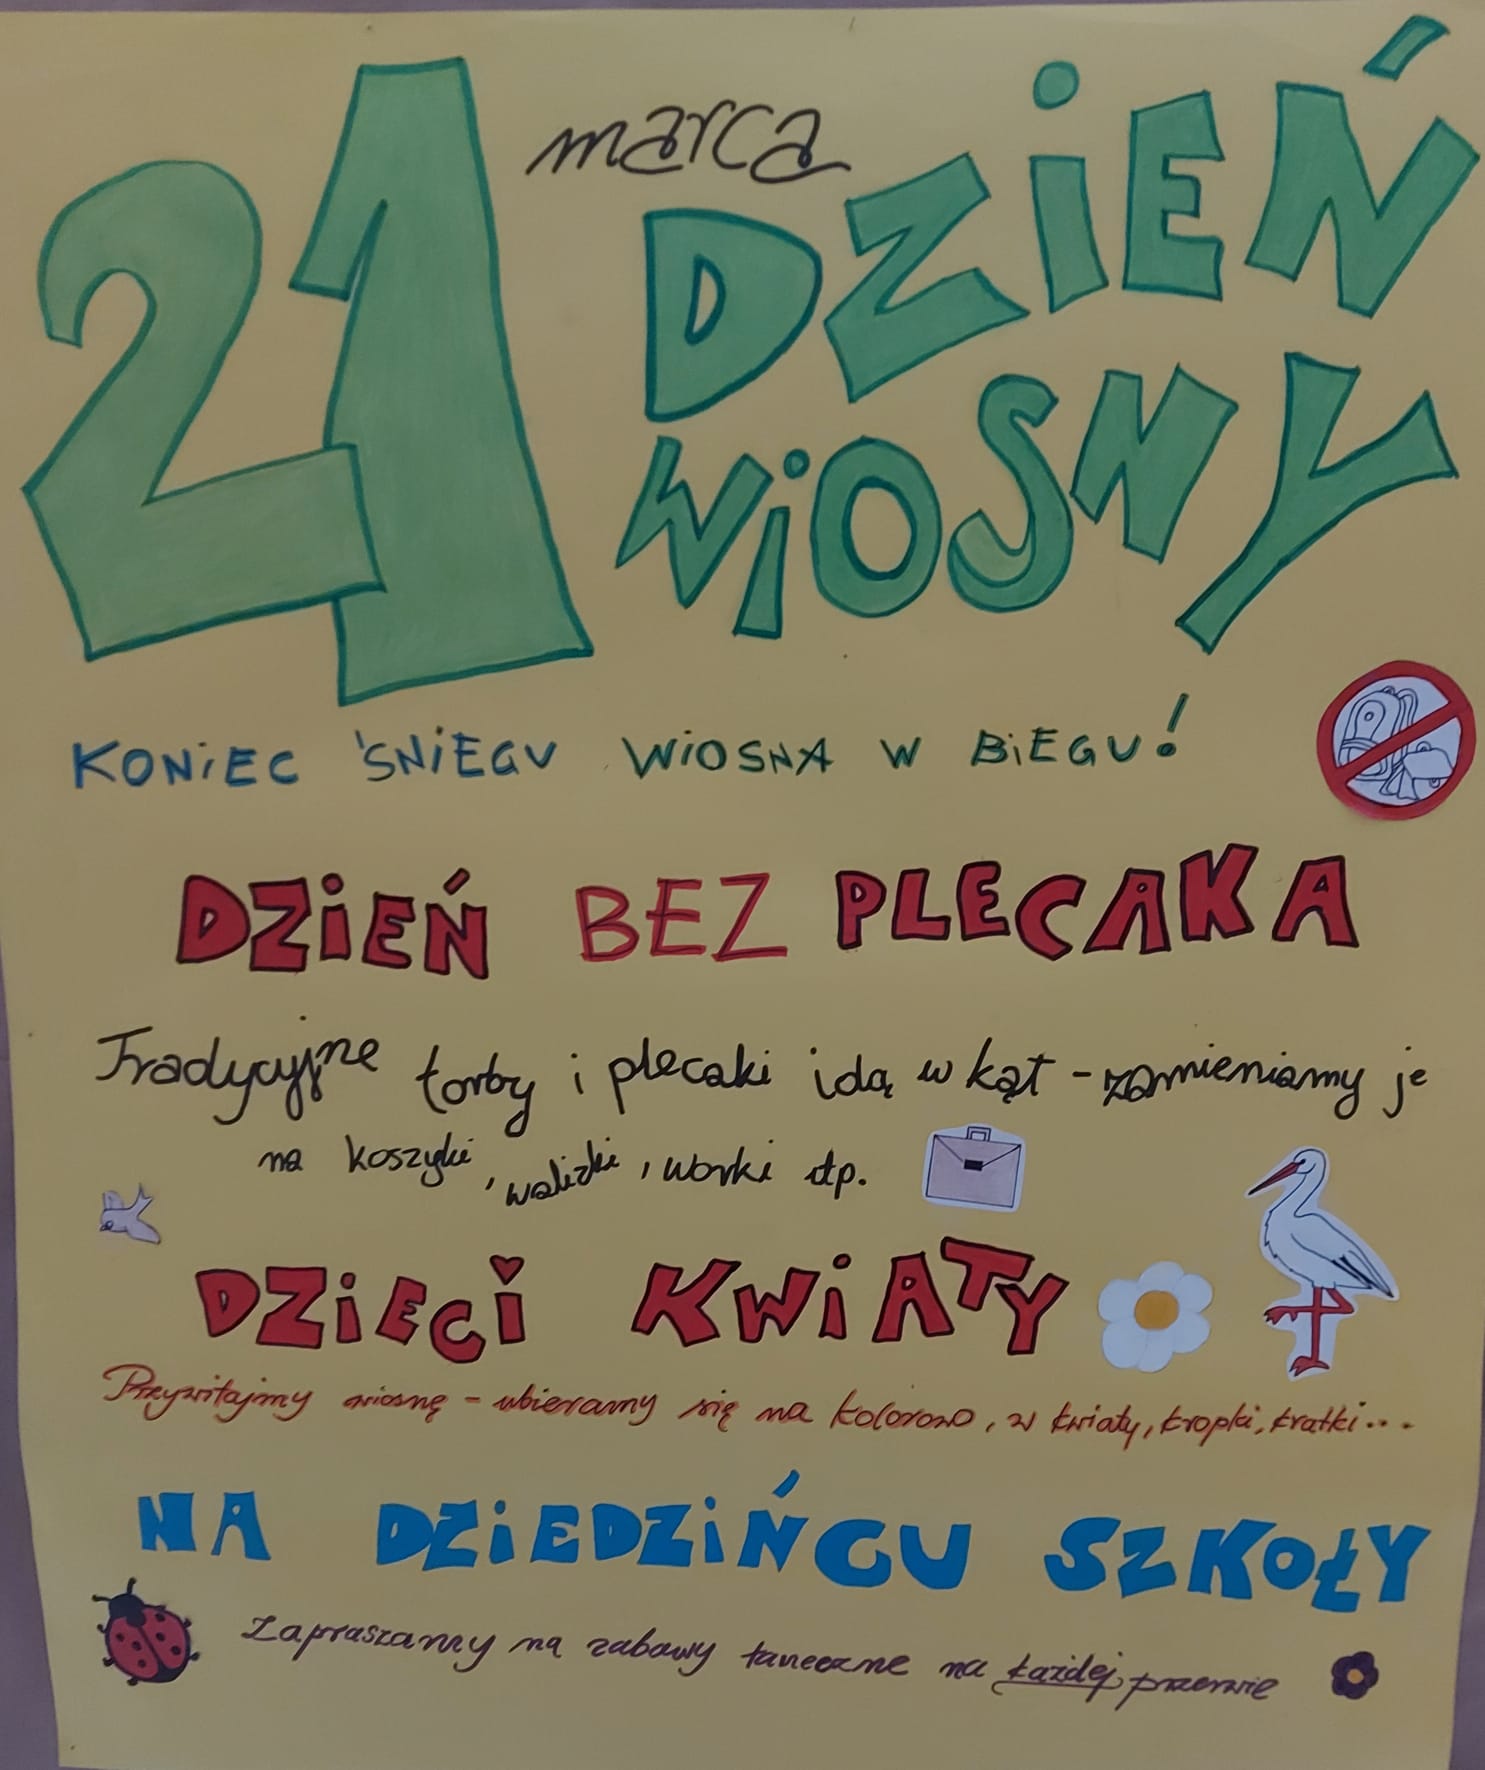 21 marca DZiEŃ
WiOSNY
KONiEC ŚNiEGU WiOSNA W BiEGU!
DZiEŃ BEZ PLECAKA
Tradycyjne torby i plecaki idą w kąt - zamieniamy je
na koszyki, walizki, worki itp.
DZiECi KWiATY
Przywitajmy wiosnę - ubieramy się na kolorowo, w kwiaty, kropki, kratki...
NA DZiEDZiŃCU SZKOŁY
Zapraszamy na zabawy taneczne na każdej przerwie